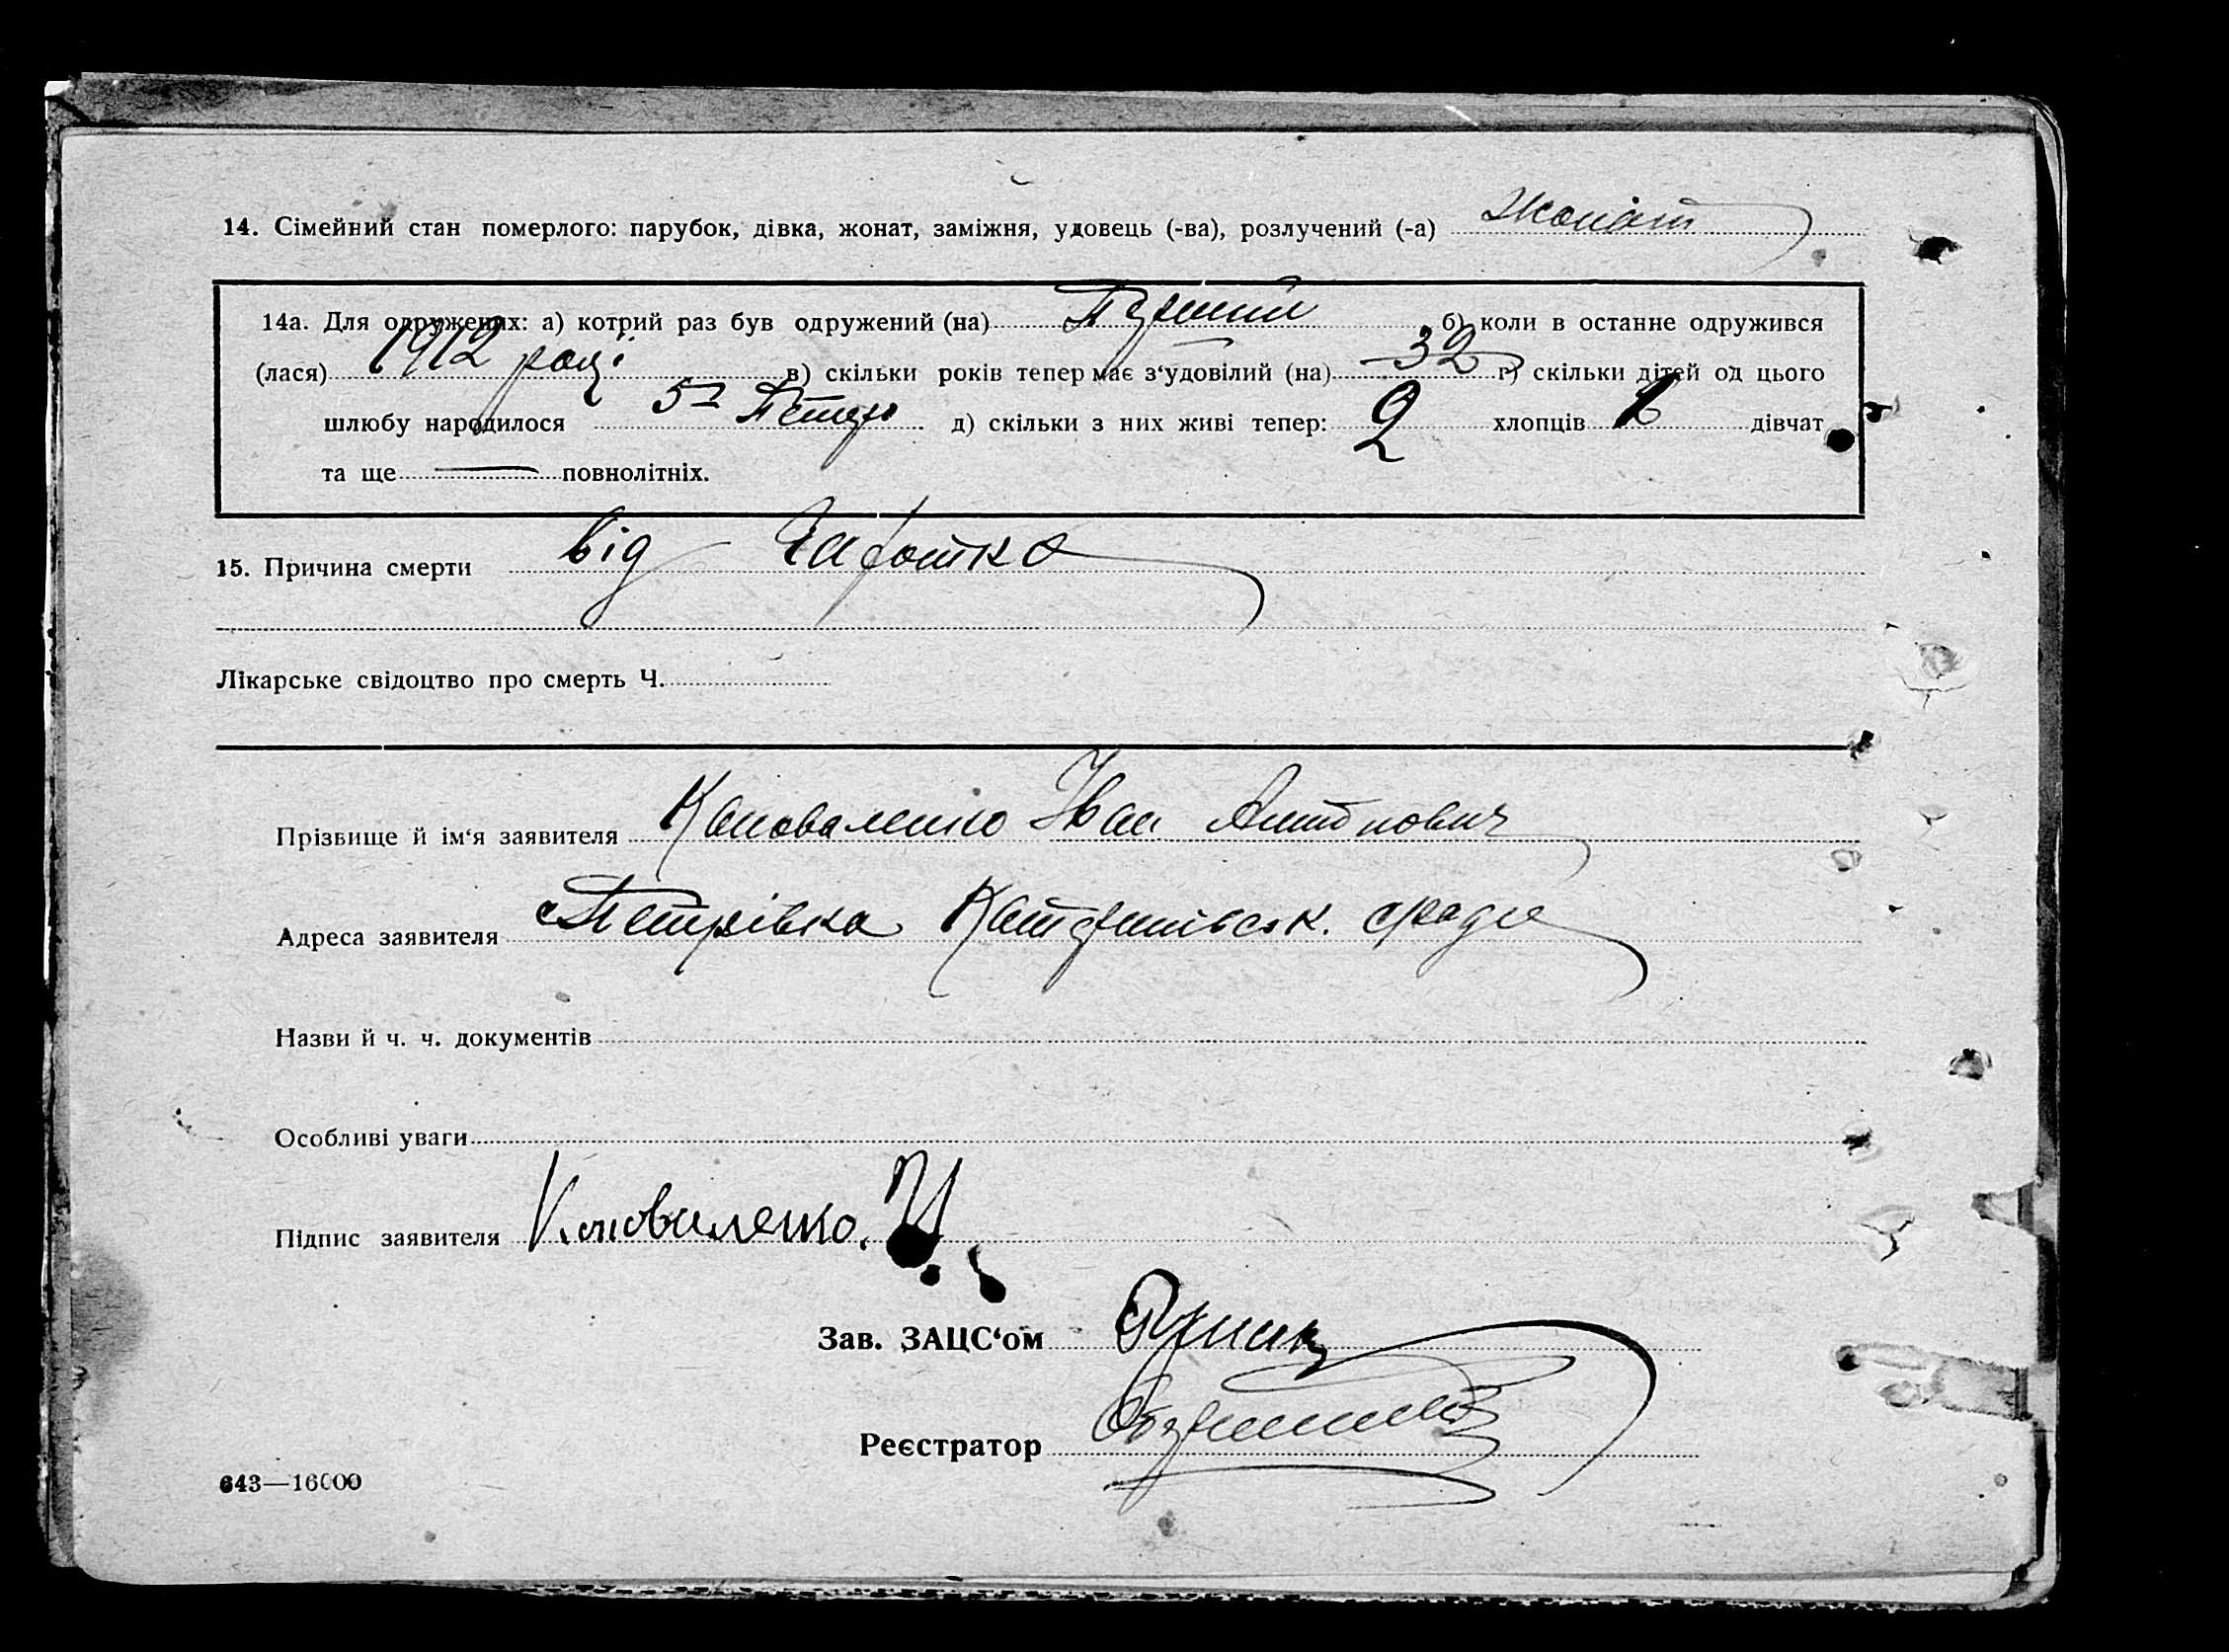 14. Сімейний стан померлого: парубок, дівка, жонат, заміжня, удовець (-ва), розлучений (-а) жонат
14а. Для одружених: а) котрий раз був одружений (на) Перший б) коли в останне одружився
(лася) 1912 році в) скільки років тепер має з‘удовілий (на) 32 г) скільки дітей од цього
шлюбу народилося 5 д) скільки з них живі тепер: 2 хлопців дівчат
та ще — повнолітніх.
15. Причина смерти від
Лікарське свідоцтво про смерть Ч.
Прізвище й ім‘я заявителя Коноваленко Іван Антонович
Адреса заявителя Петрівка
Назви й ч. ч. документів
Особливі уваги
Підпис заявителя Коноваленко. И.
Зав. ЗАЦС‘ом
Реєстратор
643—16000